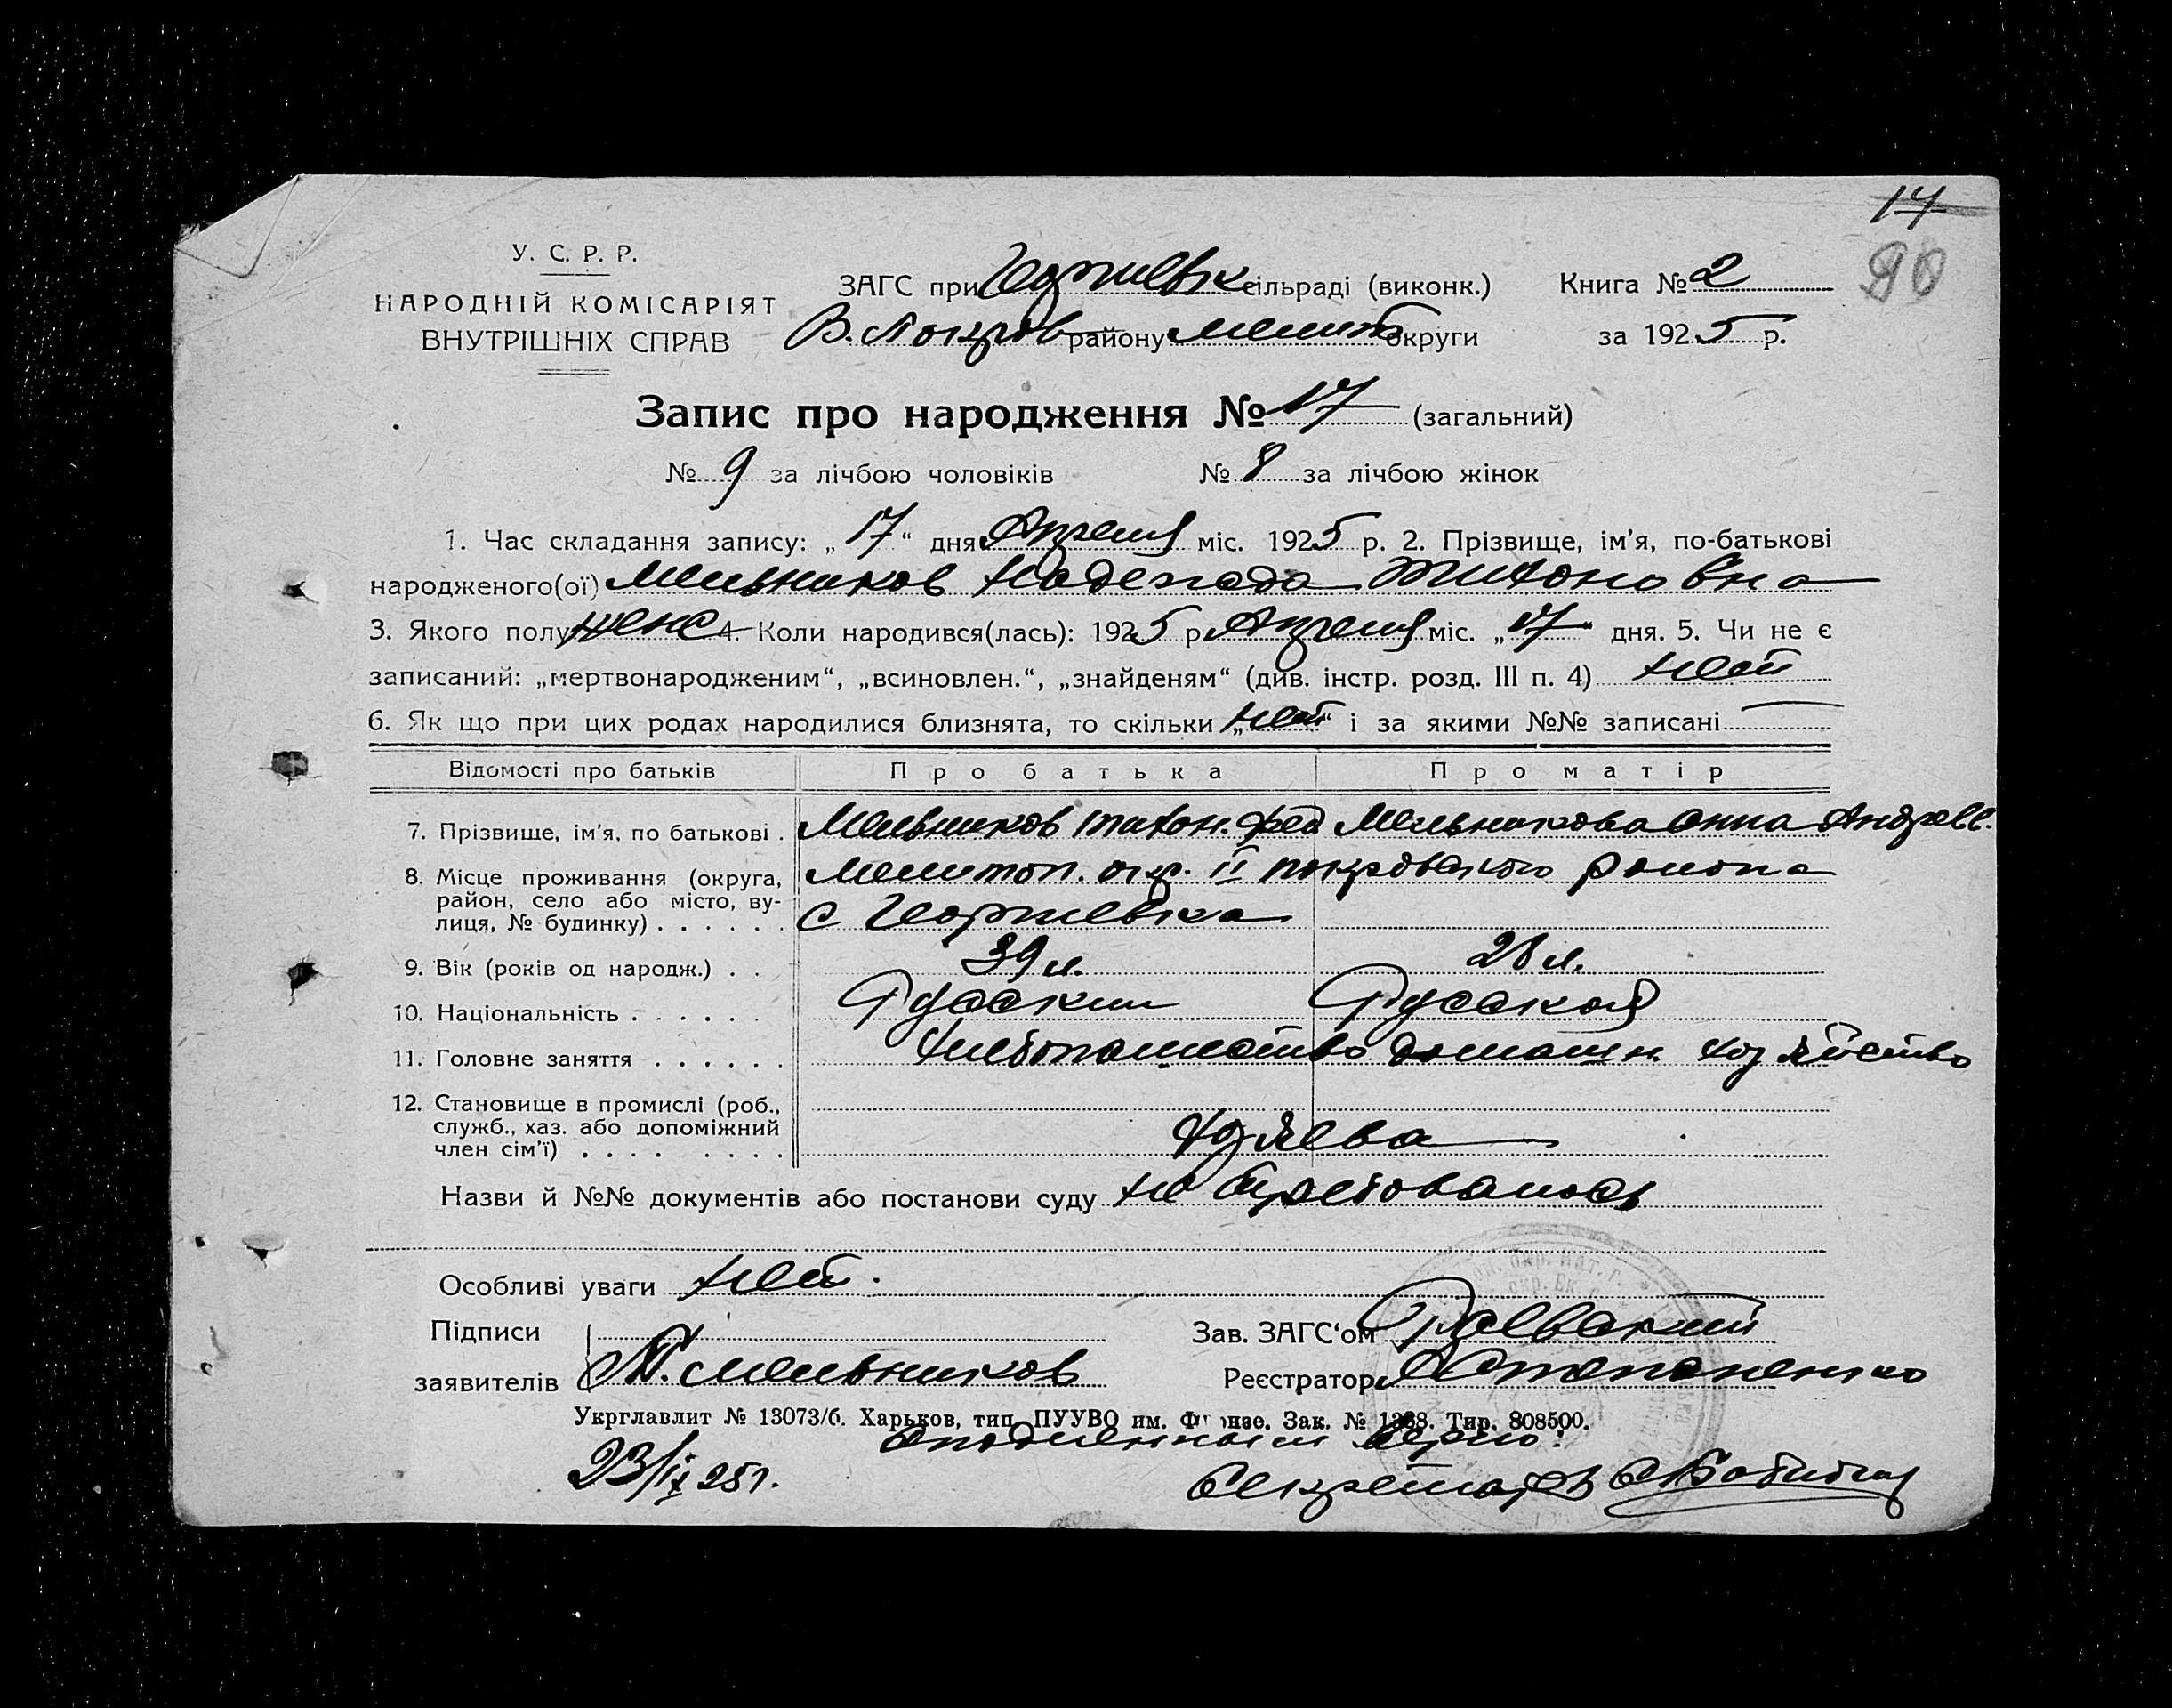 17
90
У. С. Р. Р.
НАРОДНІЙ КОМІСАРІЯТ
ВНУТРІШНІХ СПРАВ
ЗАГС при Георгиевск сільраді (виконк.) Книга № 2
В. Покров району Мелит округи за 1925 р.
Запис про народження № 17 (загальний)
№ 9 за лічбою чоловіків № 8 за лічбою жінок
1. Час складання запису: „17“ дня Апреля міс. 1925 р. 2. Прізвище, ім'я, по-батькові
народженого(ої) Мельников Надежда Тихоновна
3. Якого полу женс 4. Коли народився(лась): 1925 р. Апреля міс. „17“ дня. 5. Чи не є
записаний: „мертвонародженим“, „всиновлен.“, „знайденям“ (див. інстр. розд. III п. 4) нет
6. Як що при цих родах народилися близнята, то скільки „нет“ і за якими №№ записані —
Відомості про батьків Про батька Про матір
7. Прізвище, ім'я, по батькові . Мельников Тихон. Фед Мельникова Анна Андреев.
8. Місце проживання (округа, Мелитоп. окр. II Покровского района
район, село або місто, ву-
лиця, № будинку) . . . . . . с Георгиевка
9. Вік (років од народж.) . . 39 л. 28 л.
10. Національність . . . . . . Русский Русская
11. Головне заняття . . . . . . Хлебопашество домашн. хозяйство
12. Становище в промислі (роб.,
служб., хаз. або допоміжний
член сім'ї) . . . . . . . . хозяева
Назви й №№ документів або постанови суду не требовалось
Особливі уваги нет.
Підписи Зав. ЗАГС‘ом
заявителів Т. Мельников Реєстратор Степаненко
Укрглавлит № 13073/б. Харьков, тип. ПУУВО им. Фрунзе. Зак. № 1388. Тир. 808500.
С подленным верно:
23/IX 25 г. Секретарь